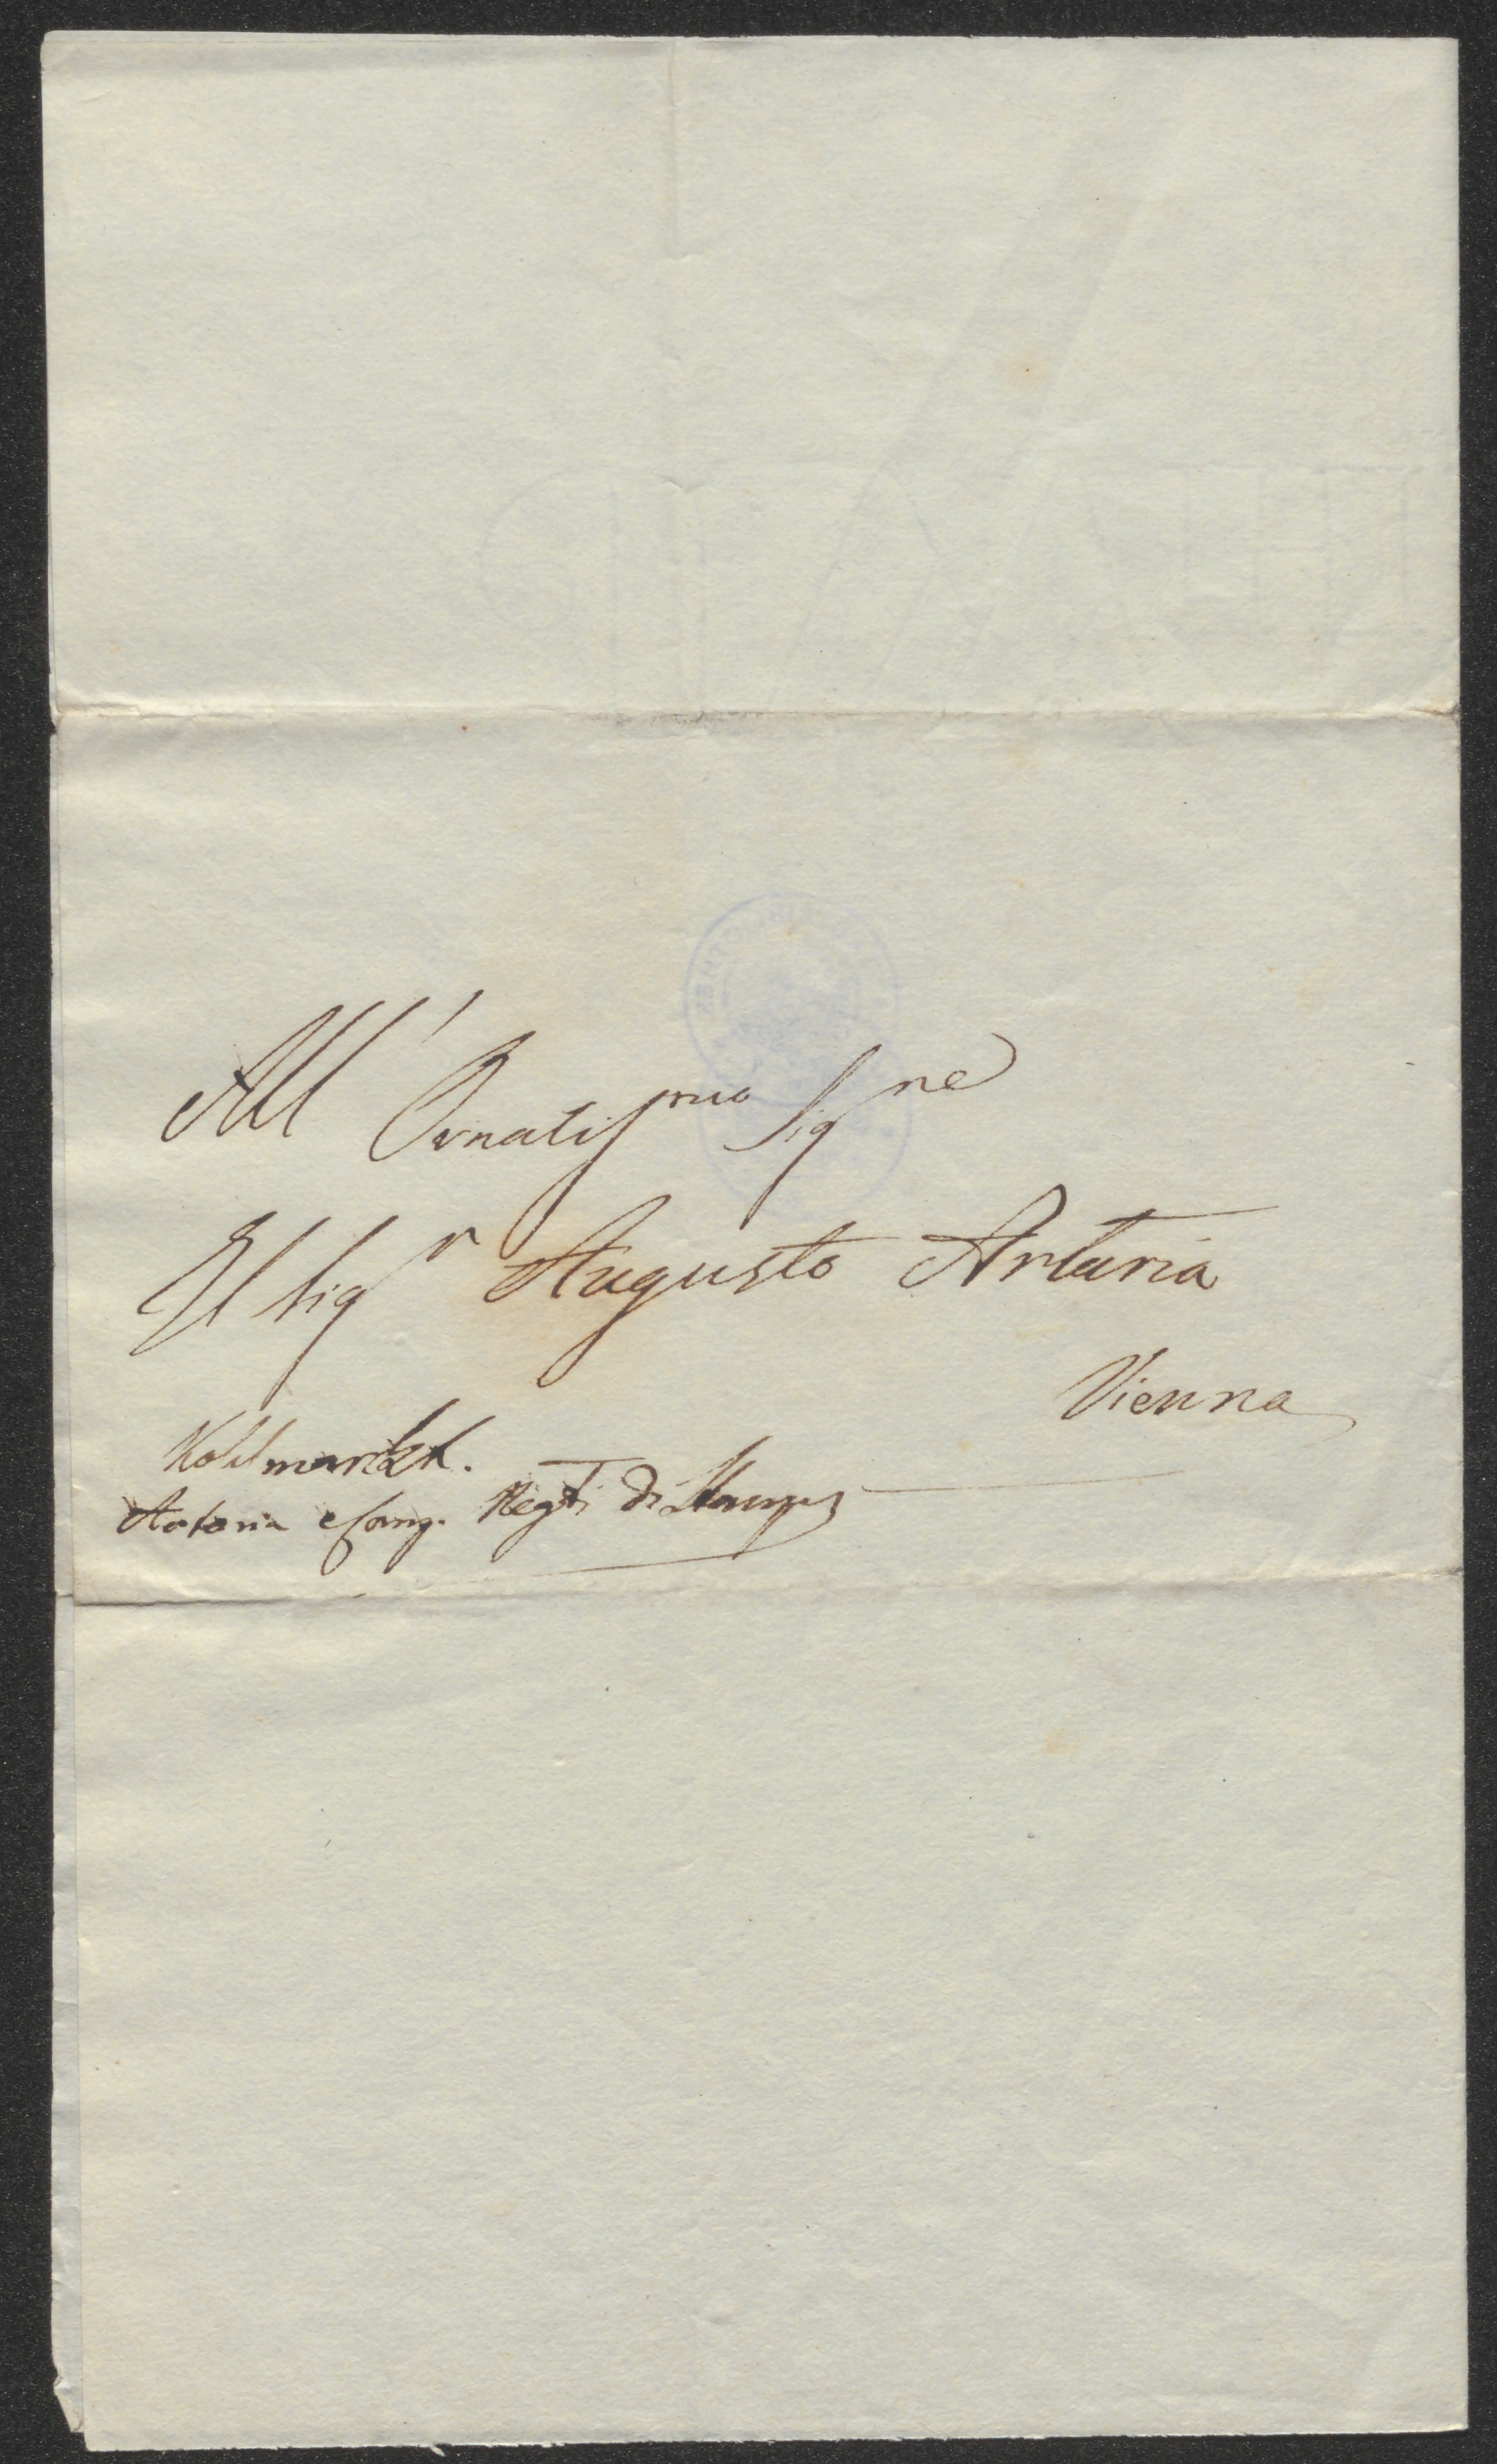 All' Ornatis.mo Sig.ne
Il Sig.r Augusto Artaria
Vienna
Kohlmarkt.
Artaria e Comp. Negti di Stampe